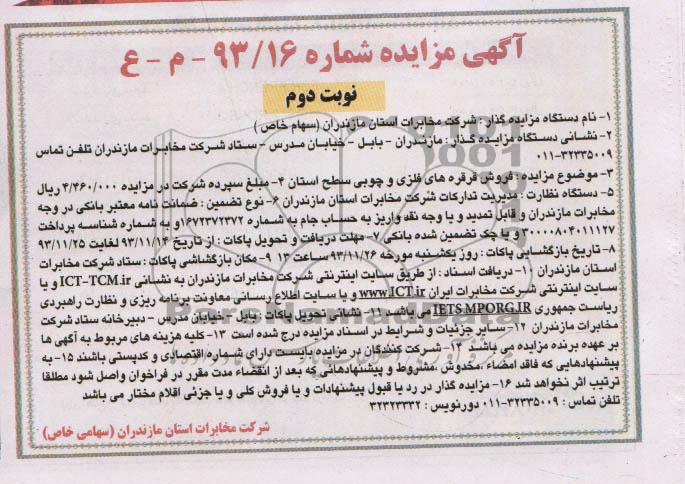 آگهی مزایده شماره ۹۳/۱۶ - م - ع
نوبت دوم
۱- نام دستگاه مزایده گذار : شرکت مخابرات استان مازندران (سهام خاص )
۲- نشانی دستگاه مزایده گذار : مازندران - بابل - خیابان مدرس - ستاد شرکت مخابرات مازندران تلفن تماس
۰۱۱-۳۲۳۳۵۰۰۹
۳- موضوع مزایده : فروش قرقره های فلزی و چوبی سطح استان ۴- مبلغ سپرده شرکت در مزایده ۴/۴۶۰/۰۰۰ ریال
۵- دستگاه نظارت : مدیریت تدارکات شرکت مخابرات استان مازندران ۶- نوع تضمین : ضمانت نامه معتبر بانکی در وجه
مخابرات مازندران و قابل تمدید و یا وجه نقد واریز به حساب جام به شماره ۱۶۷۲۳۷۲۳۷۲و به شماره شناسه پرداخت
۳۰۰۰۰۸۰۴۰۱۱۱۲۷ و یا چک تضمین شده بانکی ۷- مهلت دریافت و تحویل پاکات : از تاریخ ۹۳/۱۱/۱۴ لغایت ۹۳/۱۱/۲۵
۸- تاریخ بازگشایی پاکات : روز یکشنبه مورخه ۹۳/۱۱/۲۶ ساعت ۱۳ ۹- مکان بازگشائی پاکات : ستاد شرکت مخابرات
استان مازندران ۱۰- دریافت اسناد : از طریق سایت اینترنتی شرکت مخابرات مازندران به نشانی ICT-TCM.ir و یا
سایت اینترنتی شرکت مخابرات ایران www.ICT.ir و یا سایت اطلاع رسانی معاونت برنامه ریزی و نظارت راهبردی
ریاست جمهوری IETS.MPORG.IR می باشد ۱۱- نشانی تحویل پاکات : بابل - خیابان مدرس - دبیرخانه ستاد شرکت
مخابرات مازندران ۱۲- سایر جزئیات و شرایط در اسناد مزایده درج شده است ۱۳- کلیه هزینه های مربوط به آگهی ها
بر عهده برنده مزایده می باشد ۱۴- شرکت کنندگان در مزایده بایست دارای شماره اقتصادی و کدپستی باشند ۱۵- به
پیشنهادهایی که فاقد امضاء ،مخدوش ،مشروط و پیشنهادهائی که بعد از انقضاء مدت مقرر در فراخوان واصل شود مطلقا
ترتیب اثر نخواهد شد ۱۶- مزایده گذار در رد یا قبول پیشنهادات و یا فروش کلی و یا جزئی اقلام مختار می باشد
تلفن تماس : ۳۲۳۳۵۰۰۹-۰۱۱ دورنویس : ۳۲۳۲۳۳۳۲
شرکت مخابرات استان مازندران (سهامی خاص)